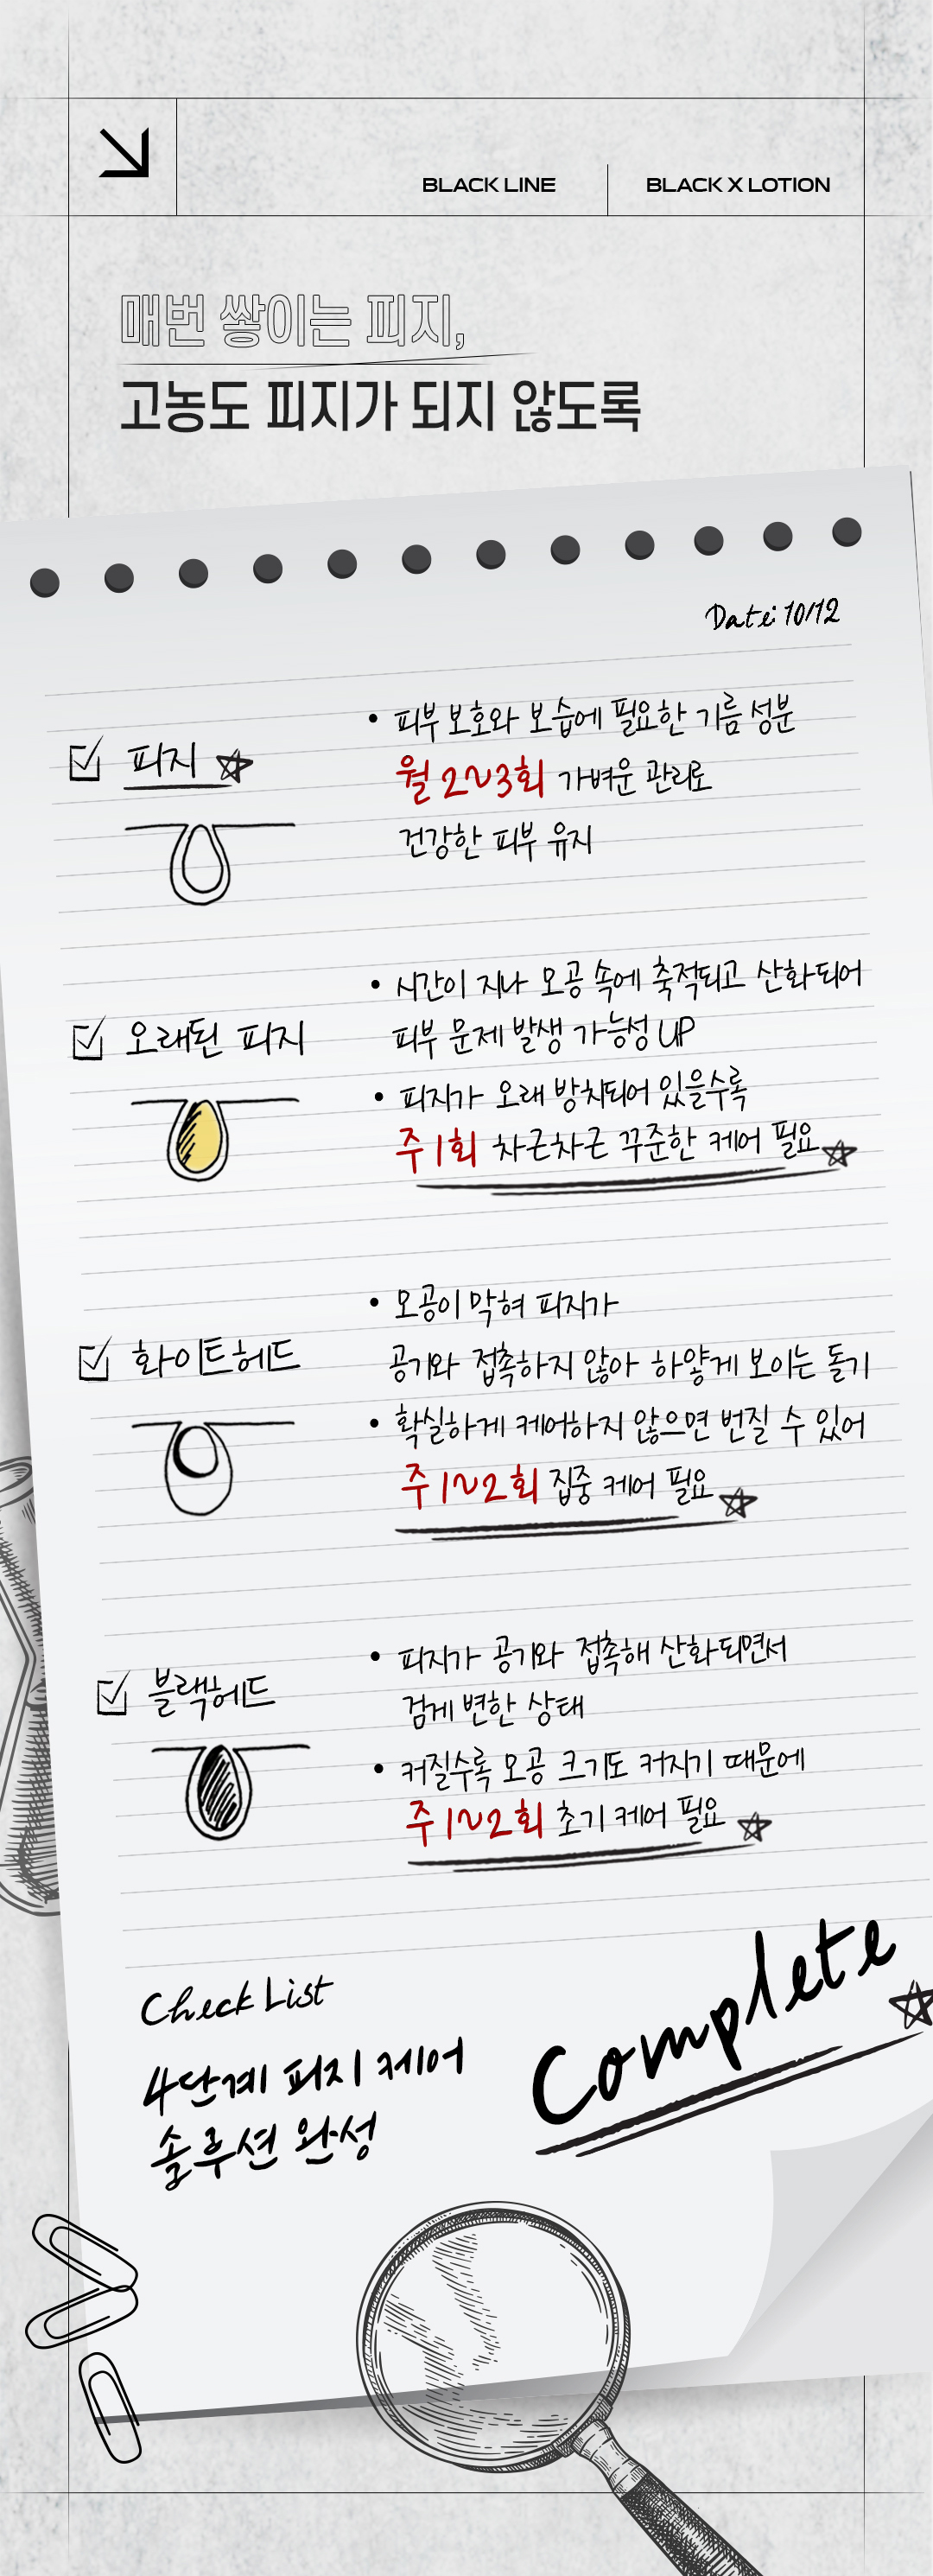 BLACK LINE
BLACK X LOTION
매번 쌓이는 피지,
고농도 피지가 되지 않도록
Date: 10/12
피지
• 피부 보호와 보습에 필요한 기름 성분
월 2~3회 가벼운 관리로
건강한 피부 유지
오래된 피지
• 시간이 지나 모공 속에 축적되고 산화되어
피부 문제 발생 가능성 UP
• 피지가 오래 방치되어 있을수록
주 1회 차근차근 꾸준한 케어 필요
화이트헤드
• 모공이 막혀 피지가
공기와 접촉하지 않아 하얗게 보이는 돌기
• 확실하게 케어하지 않으면 번질 수 있어
주 1~2회 집중 케어 필요
블랙헤드
• 피지가 공기와 접촉해 산화되면서
검게 변한 상태
• 커질수록 모공 크기도 커지기 때문에
주 1~2회 초기 케어 필요
Check List
4단계 피지 케어
솔루션 완성
Complete